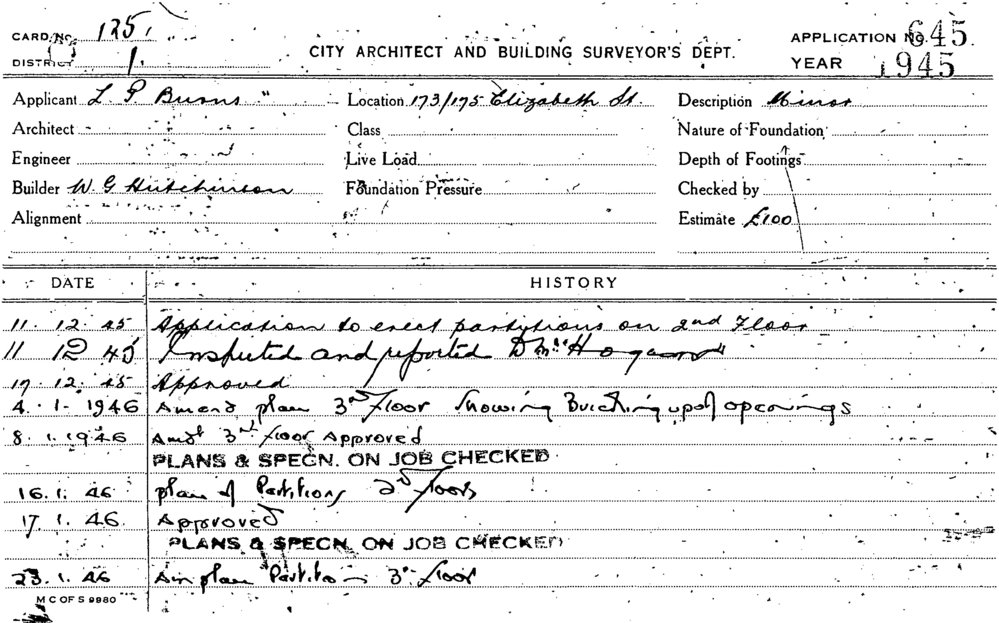 CARD No. 125.
DISTRICT 1.
CITY ARCHITECT AND BUILDING SURVEYOR'S DEPT.
APPLICATION No. 645
YEAR 1945
Applicant L P Burns Location 173/175 Elizabeth St. Description Minor
Architect Class Nature of Foundation
Engineer Live Load Depth of Footings
Builder W G Hutchinson Foundation Pressure Checked by
Alignment Estimate £100
DATE HISTORY
11. 12. 45 Application to erect partitions on 2nd Floor
11 12 45 Inspected and reported D
17. 12. 45 Approved
4. 1. 1946 Amend plan 3rd floor showing Bricking up of openings
8. 1. 1946 Amdt 3rd floor Approved
PLANS & SPECN. ON JOB CHECKED
16. 1. 46 plan of Partitions floor
17. 1. 46 Approved
PLANS & SPECN. ON JOB CHECKED
23. 1. 46 plan Partition 3rd floor
M C OF S 9980